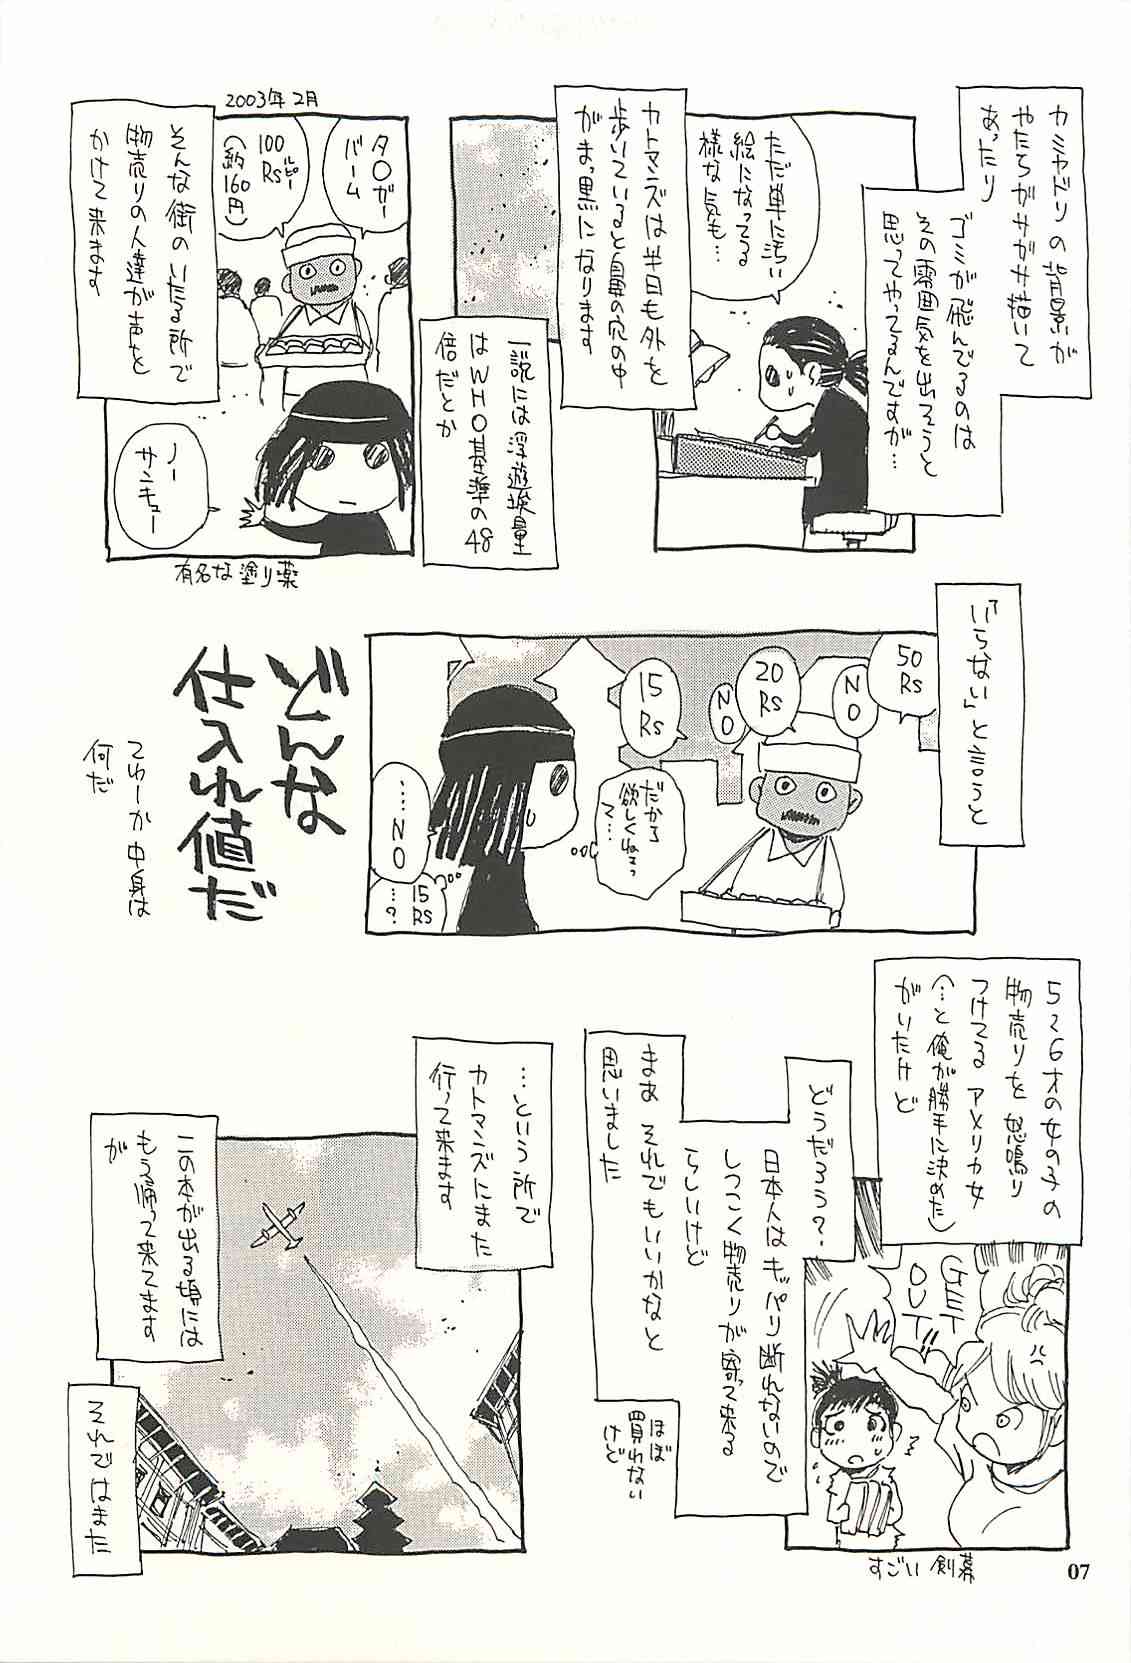 カミヤドリの背景が
やたらガサガサ描いて
あったり
ゴミが飛んでるのは
その雰囲気を出そうと
思ってやってるんですが…
ただ単に汚い
絵になってる
様な気も…
カトマンズは半日も外を
歩いていると鼻の穴の中
がまっ黒になります
一説には浮遊埃量
はWHO基準の48
倍だとか
2003年2月
タ〇ガー
バーム
100
ルピー
Rs
(約160円)
そんな街のいたる所で
物売りの人達が声を
かけて来ます
ノー
サンキュー
有名な塗り薬
「いらない」と言うと
50
Rs
NO
20
Rs
NO
15
Rs
だから
欲しくねえっ
て…
……NO
15
Rs
…?
どんな
仕入れ値だ
てゆーか中身は
何だ
5~6才の女の子の
物売りを怒鳴り
つけてるアメリカ女
(…と俺が勝手に決めた)
がいたけど
GET
OUT
すごい剣幕
どうだろう?
日本人はキッパリ断れないので
しつこく物売りが寄って来る
らしいけど
まあそれでもいいかなと
思いました
ほぼ
買わない
けど
…という所で
カトマンズにまた
行って来ます
この本が出る頃には
もう帰って来てます
が
それではまた
07